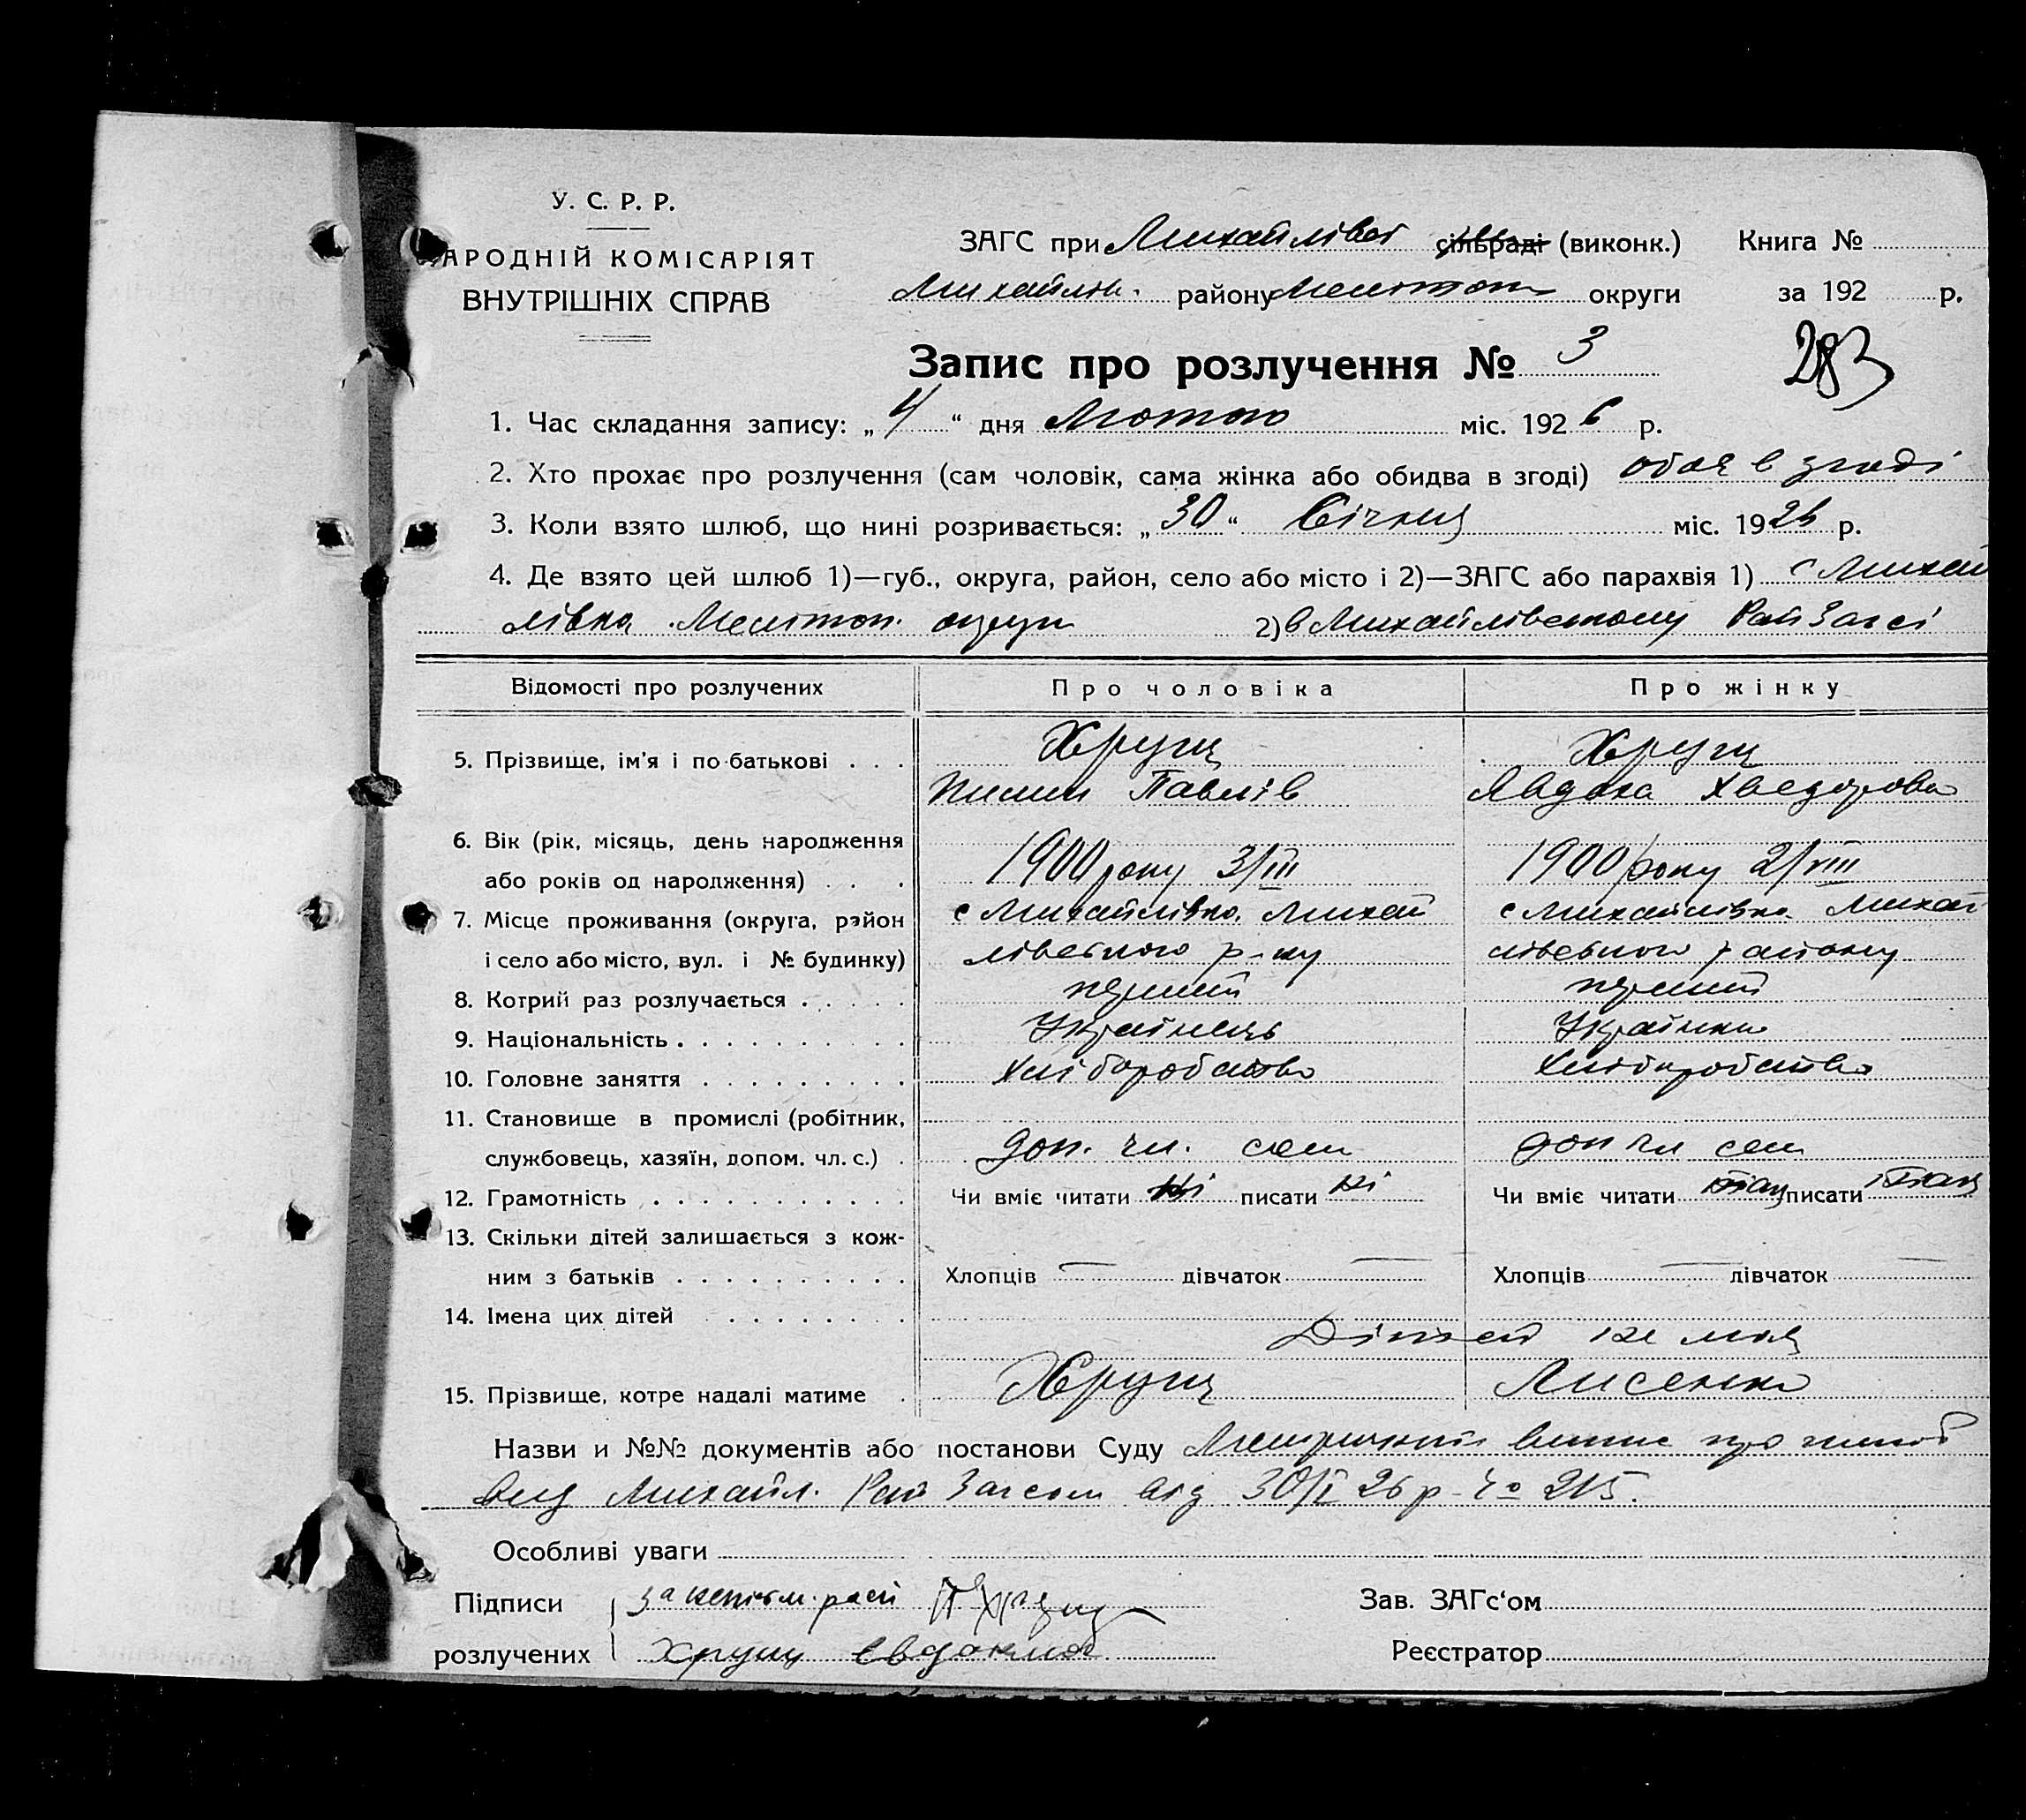 У. С. Р. Р.
АРОДНІЙ КОМІСАРІЯТ
ВНУТРІШНІХ СПРАВ
ЗАГС при Михайлівсь сільраді (виконк.) Книга №
Михайлів. району Мелітоп округи за 192 р.
Запис про розлучення № 3
283
1. Час складання запису: „ 4 “ дня Лютого міс. 192 6 р.
2. Хто прохає про розлучення (сам чоловік, сама жінка або обидва в згоді) обоє в згоді
3. Коли взято шлюб, що нині розривається: „ 30 “ Січня міс. 19 26 р.
4. Де взято цей шлюб 1)—губ., округа, район, село або місто і 2)—ЗАГС або парахвія 1) с Михай
лівка Мелітоп. округи 2) в Михайлівському РайЗагсі
Відомості про розлучених Про чоловіка Про жінку
5. Прізвище, ім'я і по-батькові Хрущ Хрущ
Пилип Павлів Явдоха Хведорова
6. Вік (рік, місяць, день народження
або років од народження) 1900 року 3/III 1900 року 2/VIII
7. Місце проживання (округа, район с Михайлівка. Михай с Михайлівка Михай
і село або місто, вул. і № будинку) лівського р-ну лівського району
8. Котрий раз розлучається перший перший
9. Національність Українець Українка
10. Головне заняття Хліборобство Хліборобство
11. Становище в промислі (робітник,
службовець, хазяїн, допом. чл. с.) доп. чл. сем доп чл сем
12. Грамотність Чи вміє читати ні писати ні Чи вміє читати писати
13. Скільки дітей залишається з кож-
ним з батьків Хлопців — дівчаток — Хлопців — дівчаток —
14. Імена цих дітей
Дітей не має
15. Прізвище, котре надалі матиме Хрущ Лисенко
Назви и №№ документів або постанови Суду Метричний випис про шлюб
вид Михайл. Рай Загсом від 30/I 26 р. 215.
Особливі уваги
Підписи За неписьм. расп Зав. ЗАГс‘ом
розлучених Хрущ Реєстратор